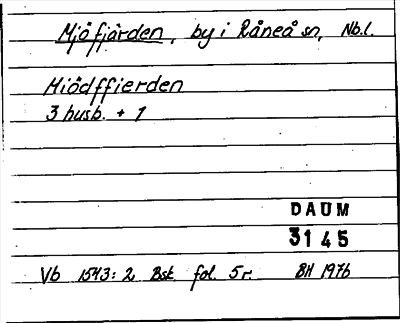 Mjöfjärden, by i Råneå sn, Nb.l.
Miödffierden
3 husb. + 1
DAUM
3145
Vb 1543:2 Bsk. fol. 5r. BH 1976